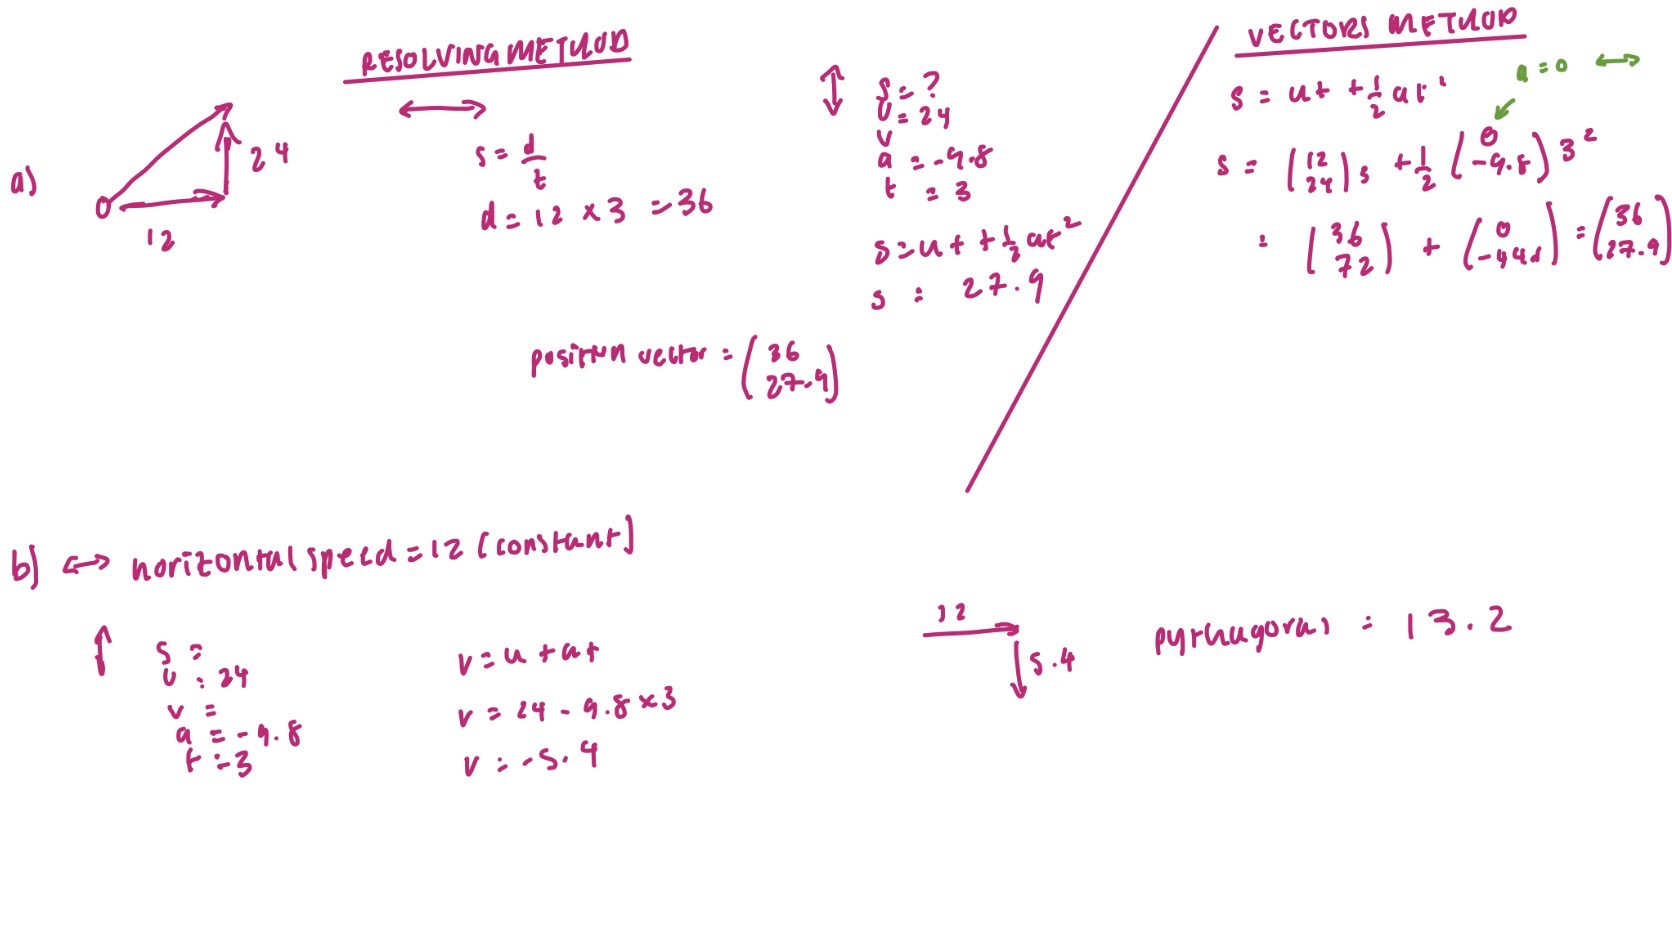 RESOLVING METHOD
a)
24
12
s = d/t
d = 12 × 3 = 36
s = ?
u = 24
v
a = -9.8
t = 3
s = ut + 1/2 at²
s = 27.9
position vector = (36 27.9)
VECTORS METHOD
a = 0
s = ut + 1/2 at²
s = (12 24) 3 + 1/2 (0 -9.8) 3²
= (36 72) + (0 -44.1) = (36 27.9)
b) horizontal speed = 12 (constant)
s =
u = 24
v =
a = -9.8
t = 3
v = u + at
v = 24 - 9.8 × 3
v = -5.4
12
5.4
pythagoras = 13.2